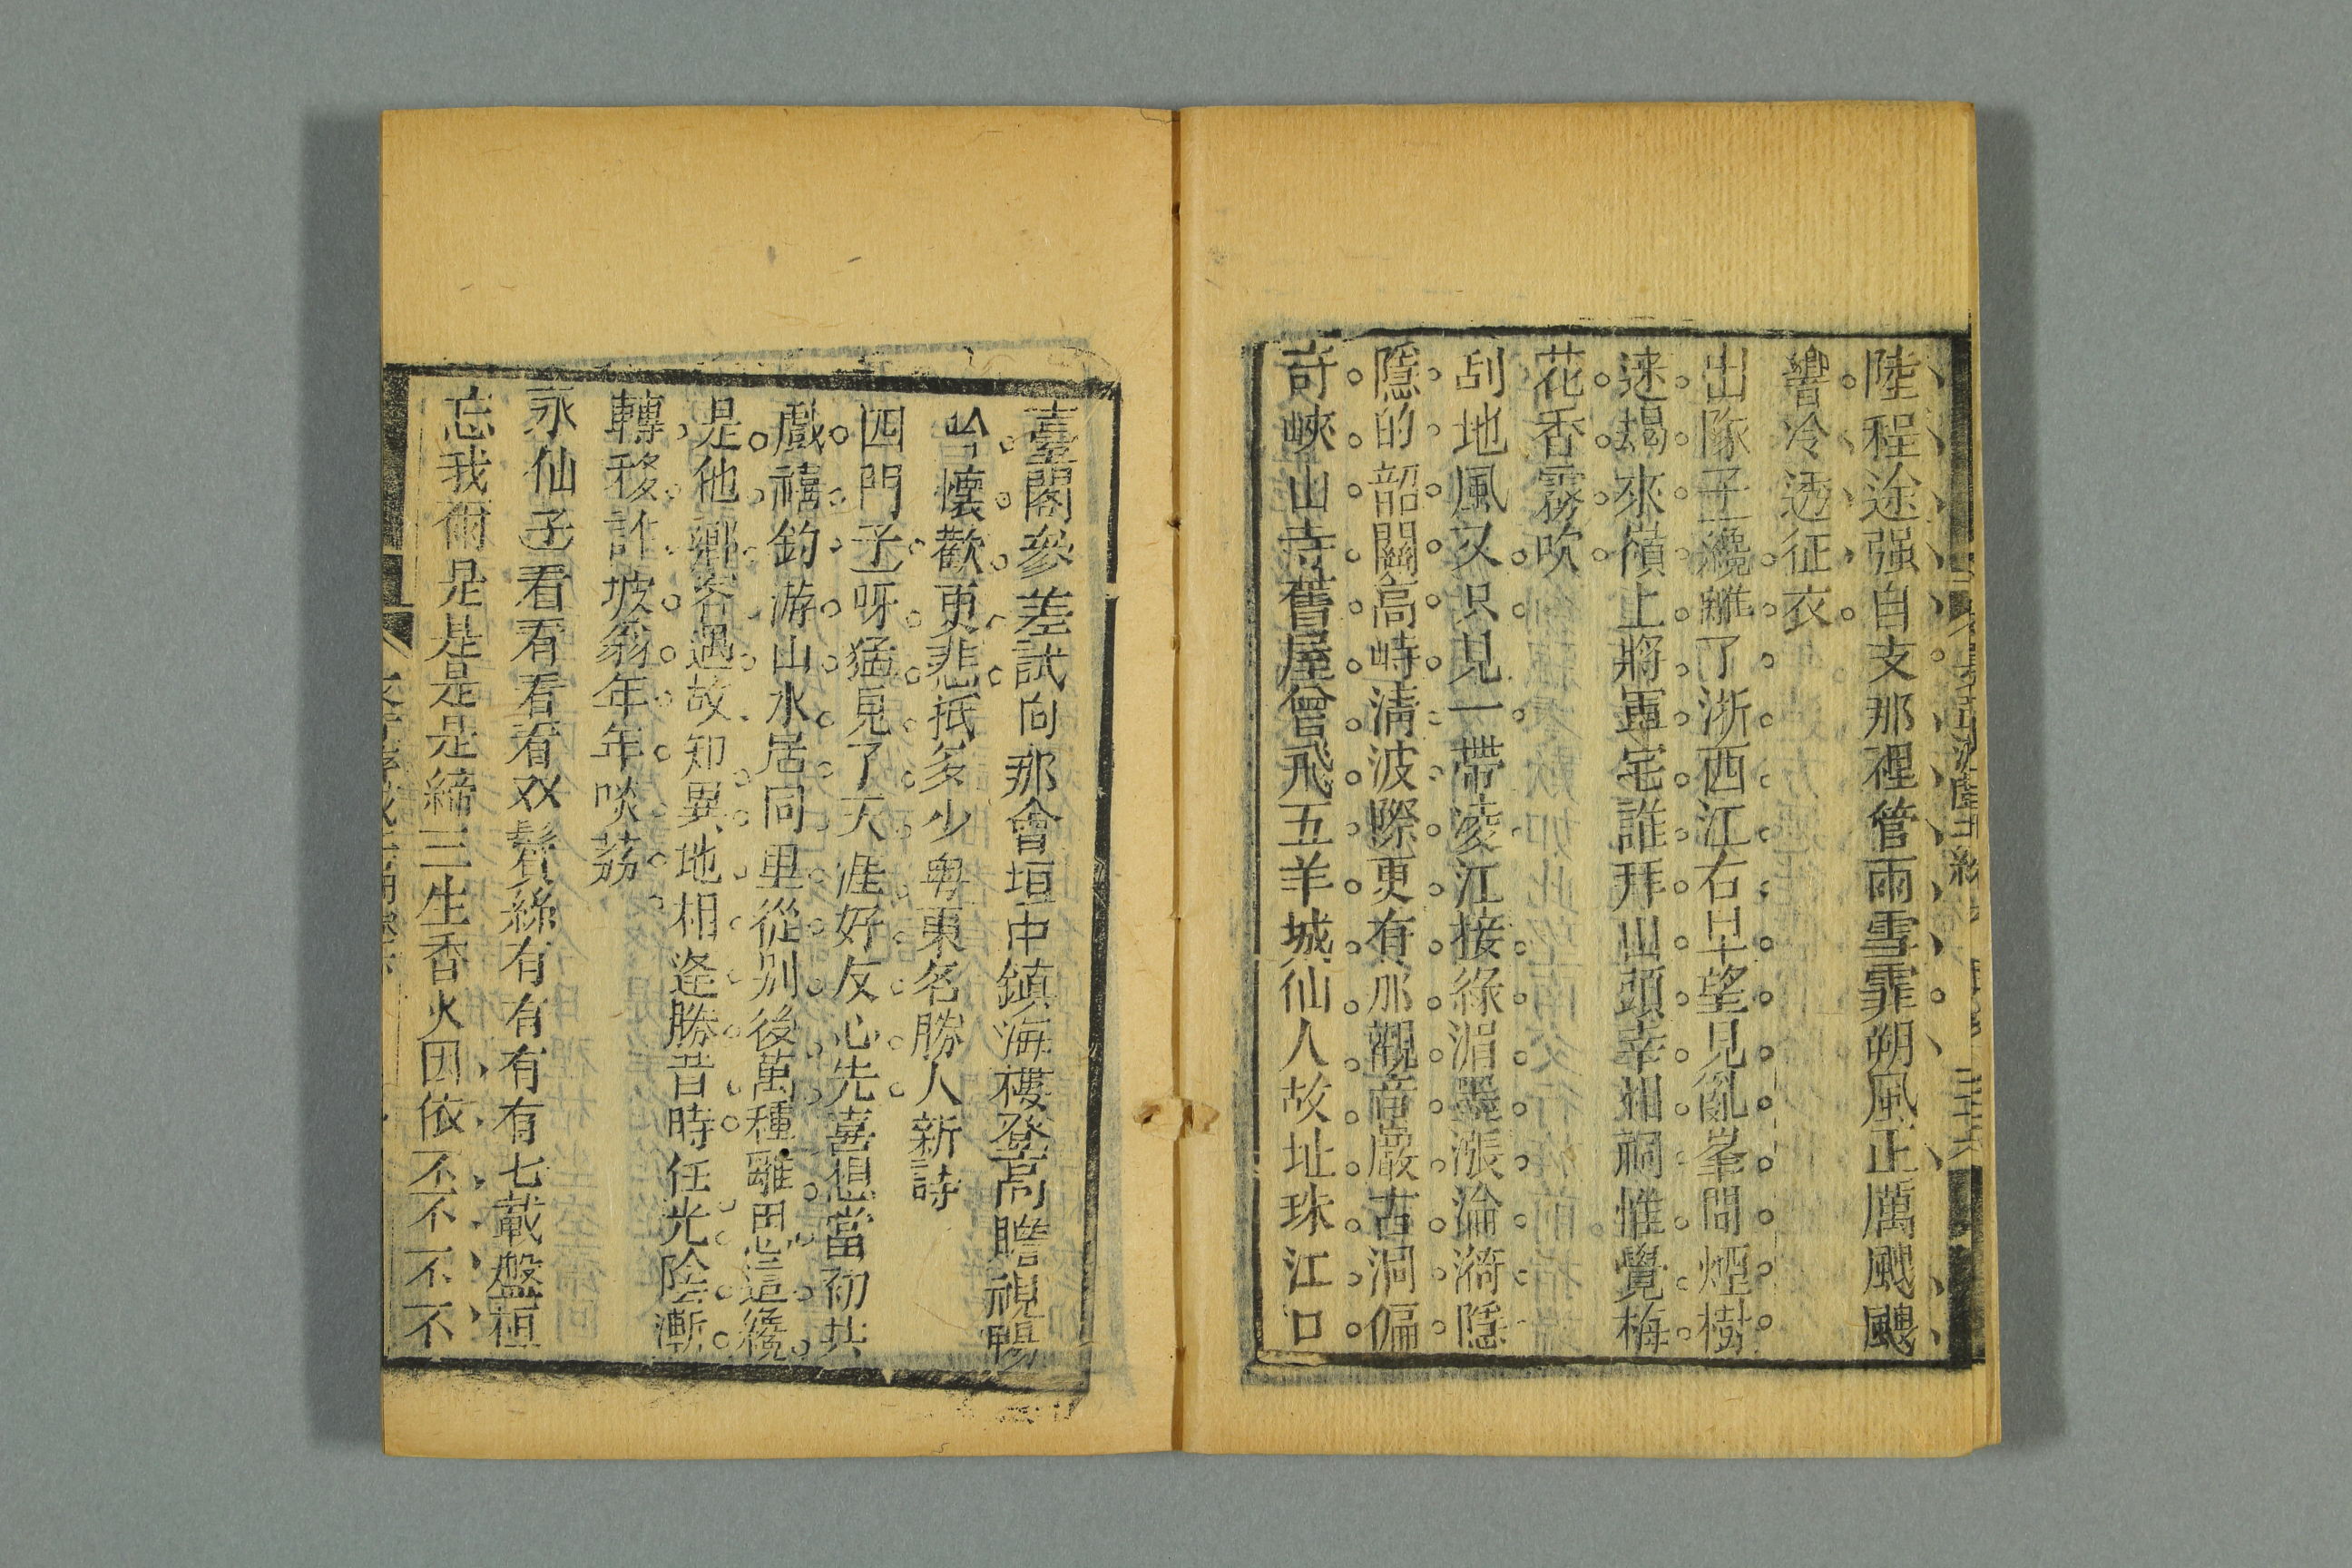 陸程途强自支那裡管雨雪霏朔風正厲颼颼
響冷透征衣
出隊子纔離了浙西江右早望見亂峯間煙樹
迷揭來嶺上將軍宅誰拜出頭幸相祠惟覺梅
花香霧吹
刮地風又只見一帶凌江接綠湄墨漲淪漪隱
隱的韶關高峙淸波際更有那觀音巖古洞偏
奇峽山寺舊屋曾飛五羊城仙人故址珠江口
臺閣參差試向那會垣中鎮海樓登高瞻視暢
吟懷歡更悲抵多少粵東名勝人新詩
四門子呀猛見了天涯好友心先喜想當初共
戲禧釣游山水居同里從别後萬種離思這纔
是他鄉客遇故知異地相逢勝昔時任光陰漸
轉移許坡翁年年啖荔
水仙子看看看看双鬢絲有有有有七載盤桓
忘我爾是是是是締三生香火因依不不不不
三十六